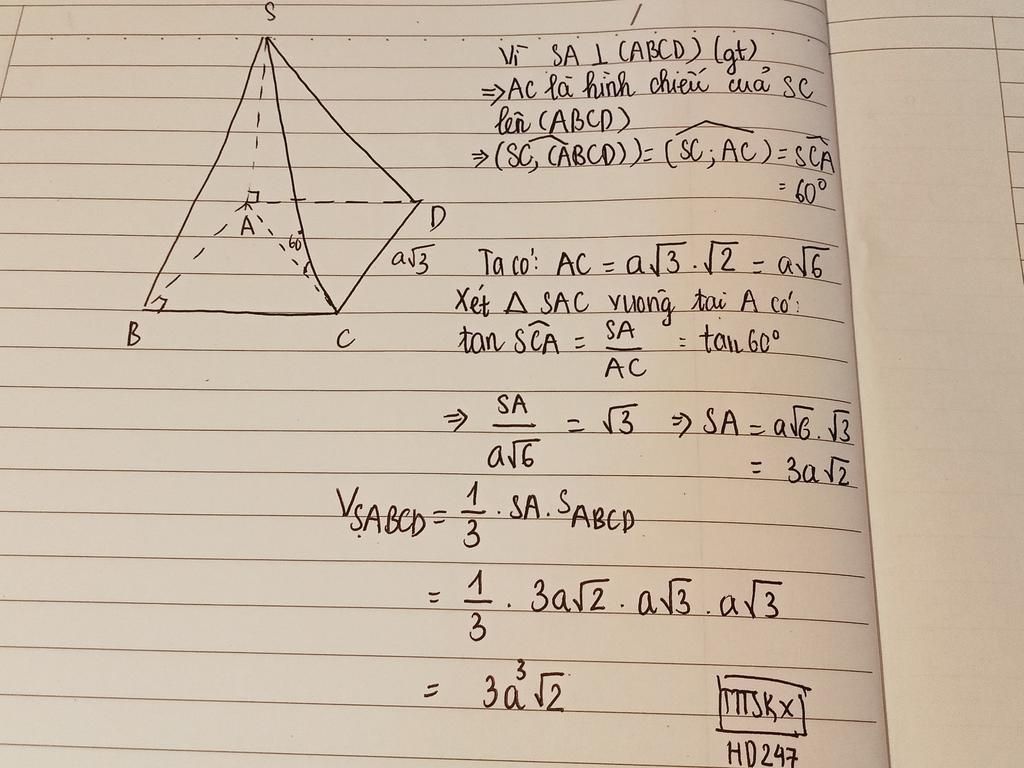 S
A
D
B
C
60°
a√3
Vì SA ⊥ (ABCD) (gt)
⇒ AC là hình chiếu của SC
lên (ABCD)
⇒ (SC, (ABCD)) = (SC; AC) = SCA
= 60°
Ta có: AC = a√3 . √2 = a√6
Xét Δ SAC vuông tại A có:
tan SCA = SA/AC = tan 60°
⇒ SA/a√6 = √3 ⇒ SA = a√6 . √3
= 3a√2
V_SABCD = 1/3 . SA . S_ABCD
= 1/3 . 3a√2 . a√3 . a√3
= 3a³√2
HD247